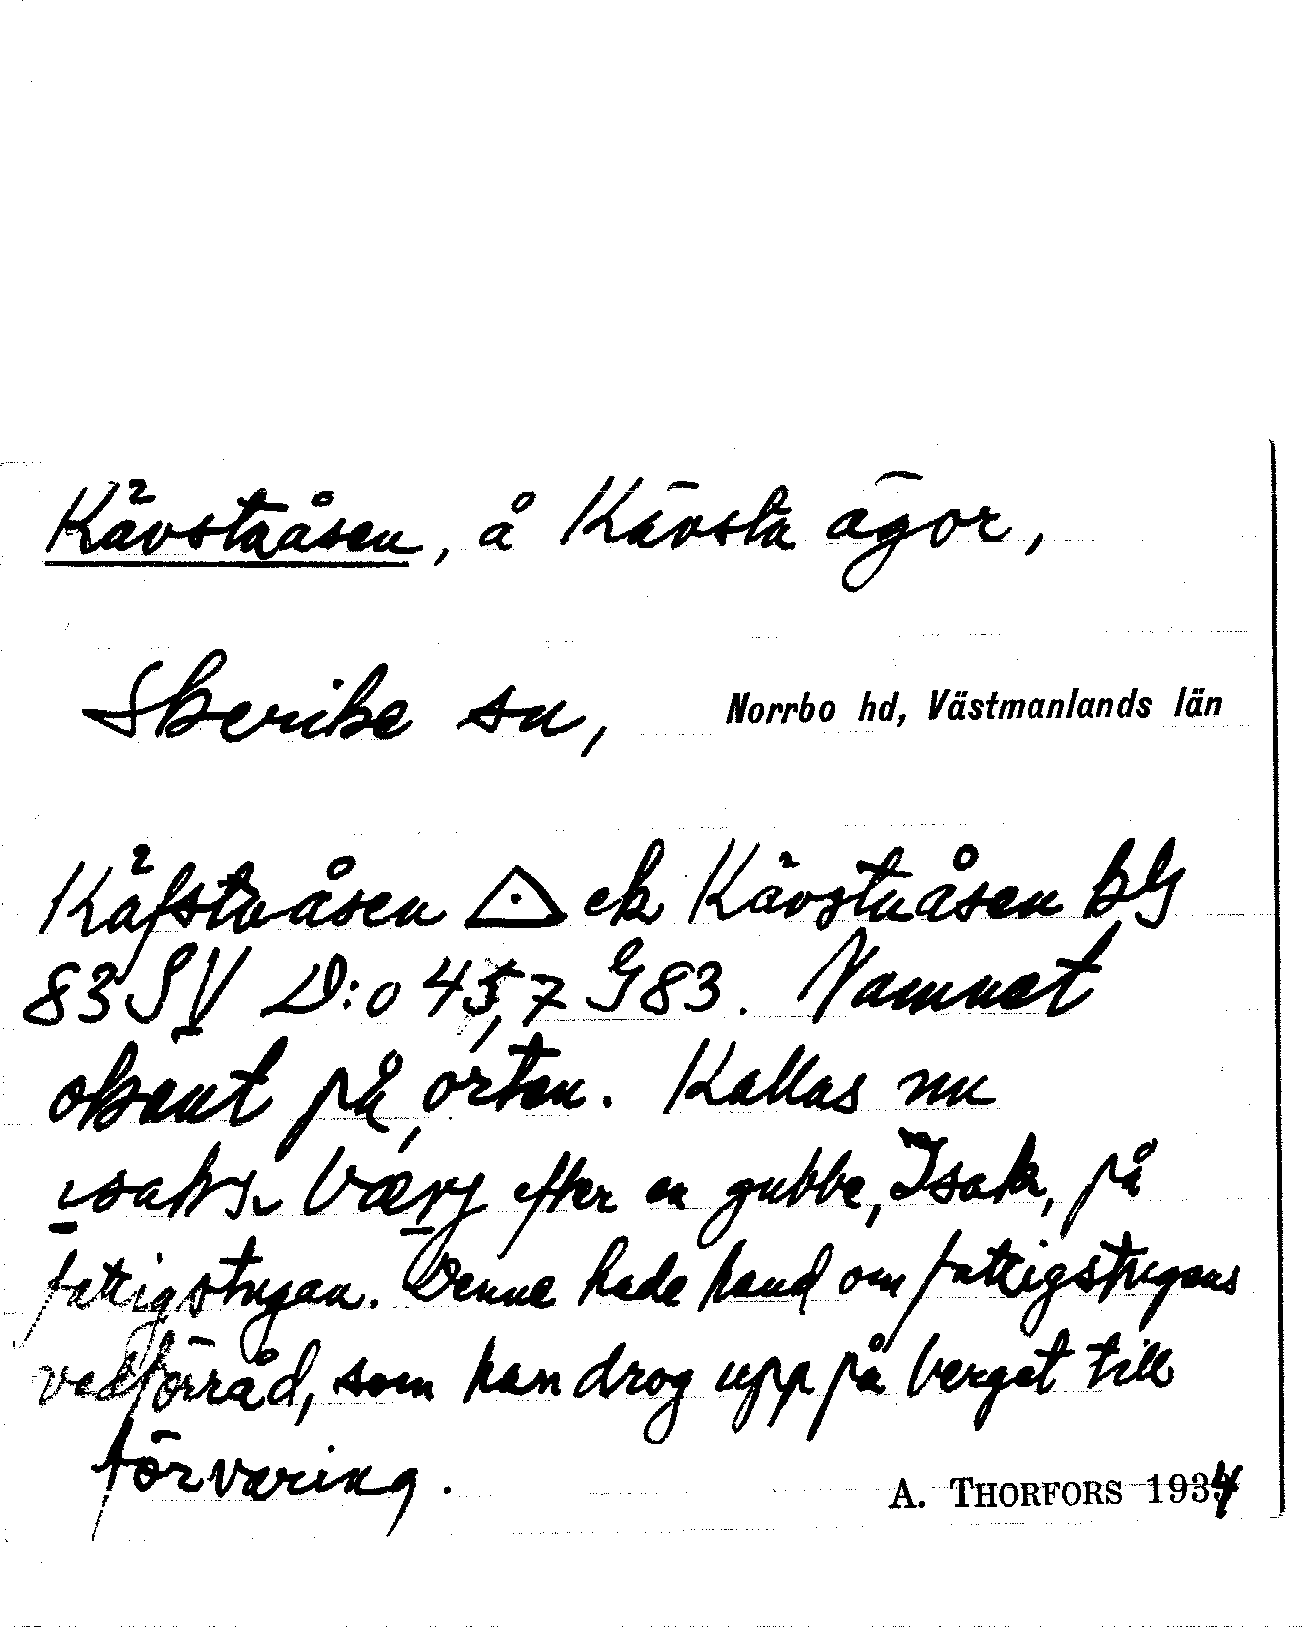 Kävstaåsen, å Kävsta ägor,
Skerike sn, Norrbo hd, Västmanlands län
Käfstaåsen ek Kävstaåsen bG
83 SV D:o 45,7 G83. Namnet
okänt på orten. Kallas nu
efter en gubbe, Isak, på
fattigstugan. Denne hade hand om fattigstugans
vedförråd, som han drog upp på berget till
förvaring.
A. THORFORS 1934